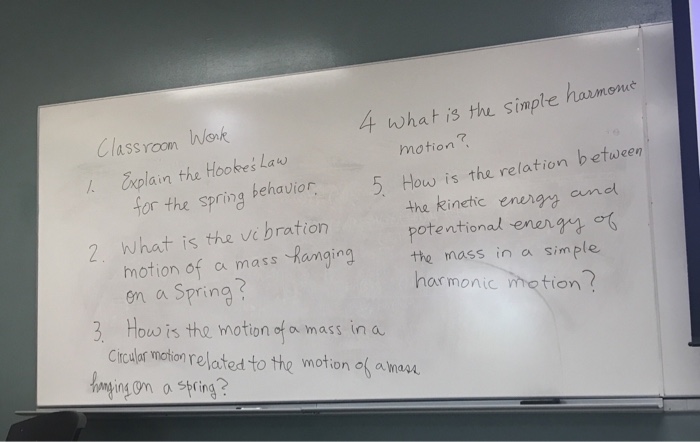 Classroom Work
1. Explain the Hooke's Law
for the spring behavior.
2. What is the vibration
motion of a mass hanging
on a Spring?
3. How is the motion of a mass in a
Circular motion related to the motion of a mass
hanging on a spring?
4 what is the simple harmonic
motion?
5. How is the relation between
the kinetic energy and
potentional energy of
the mass in a simple
harmonic motion?